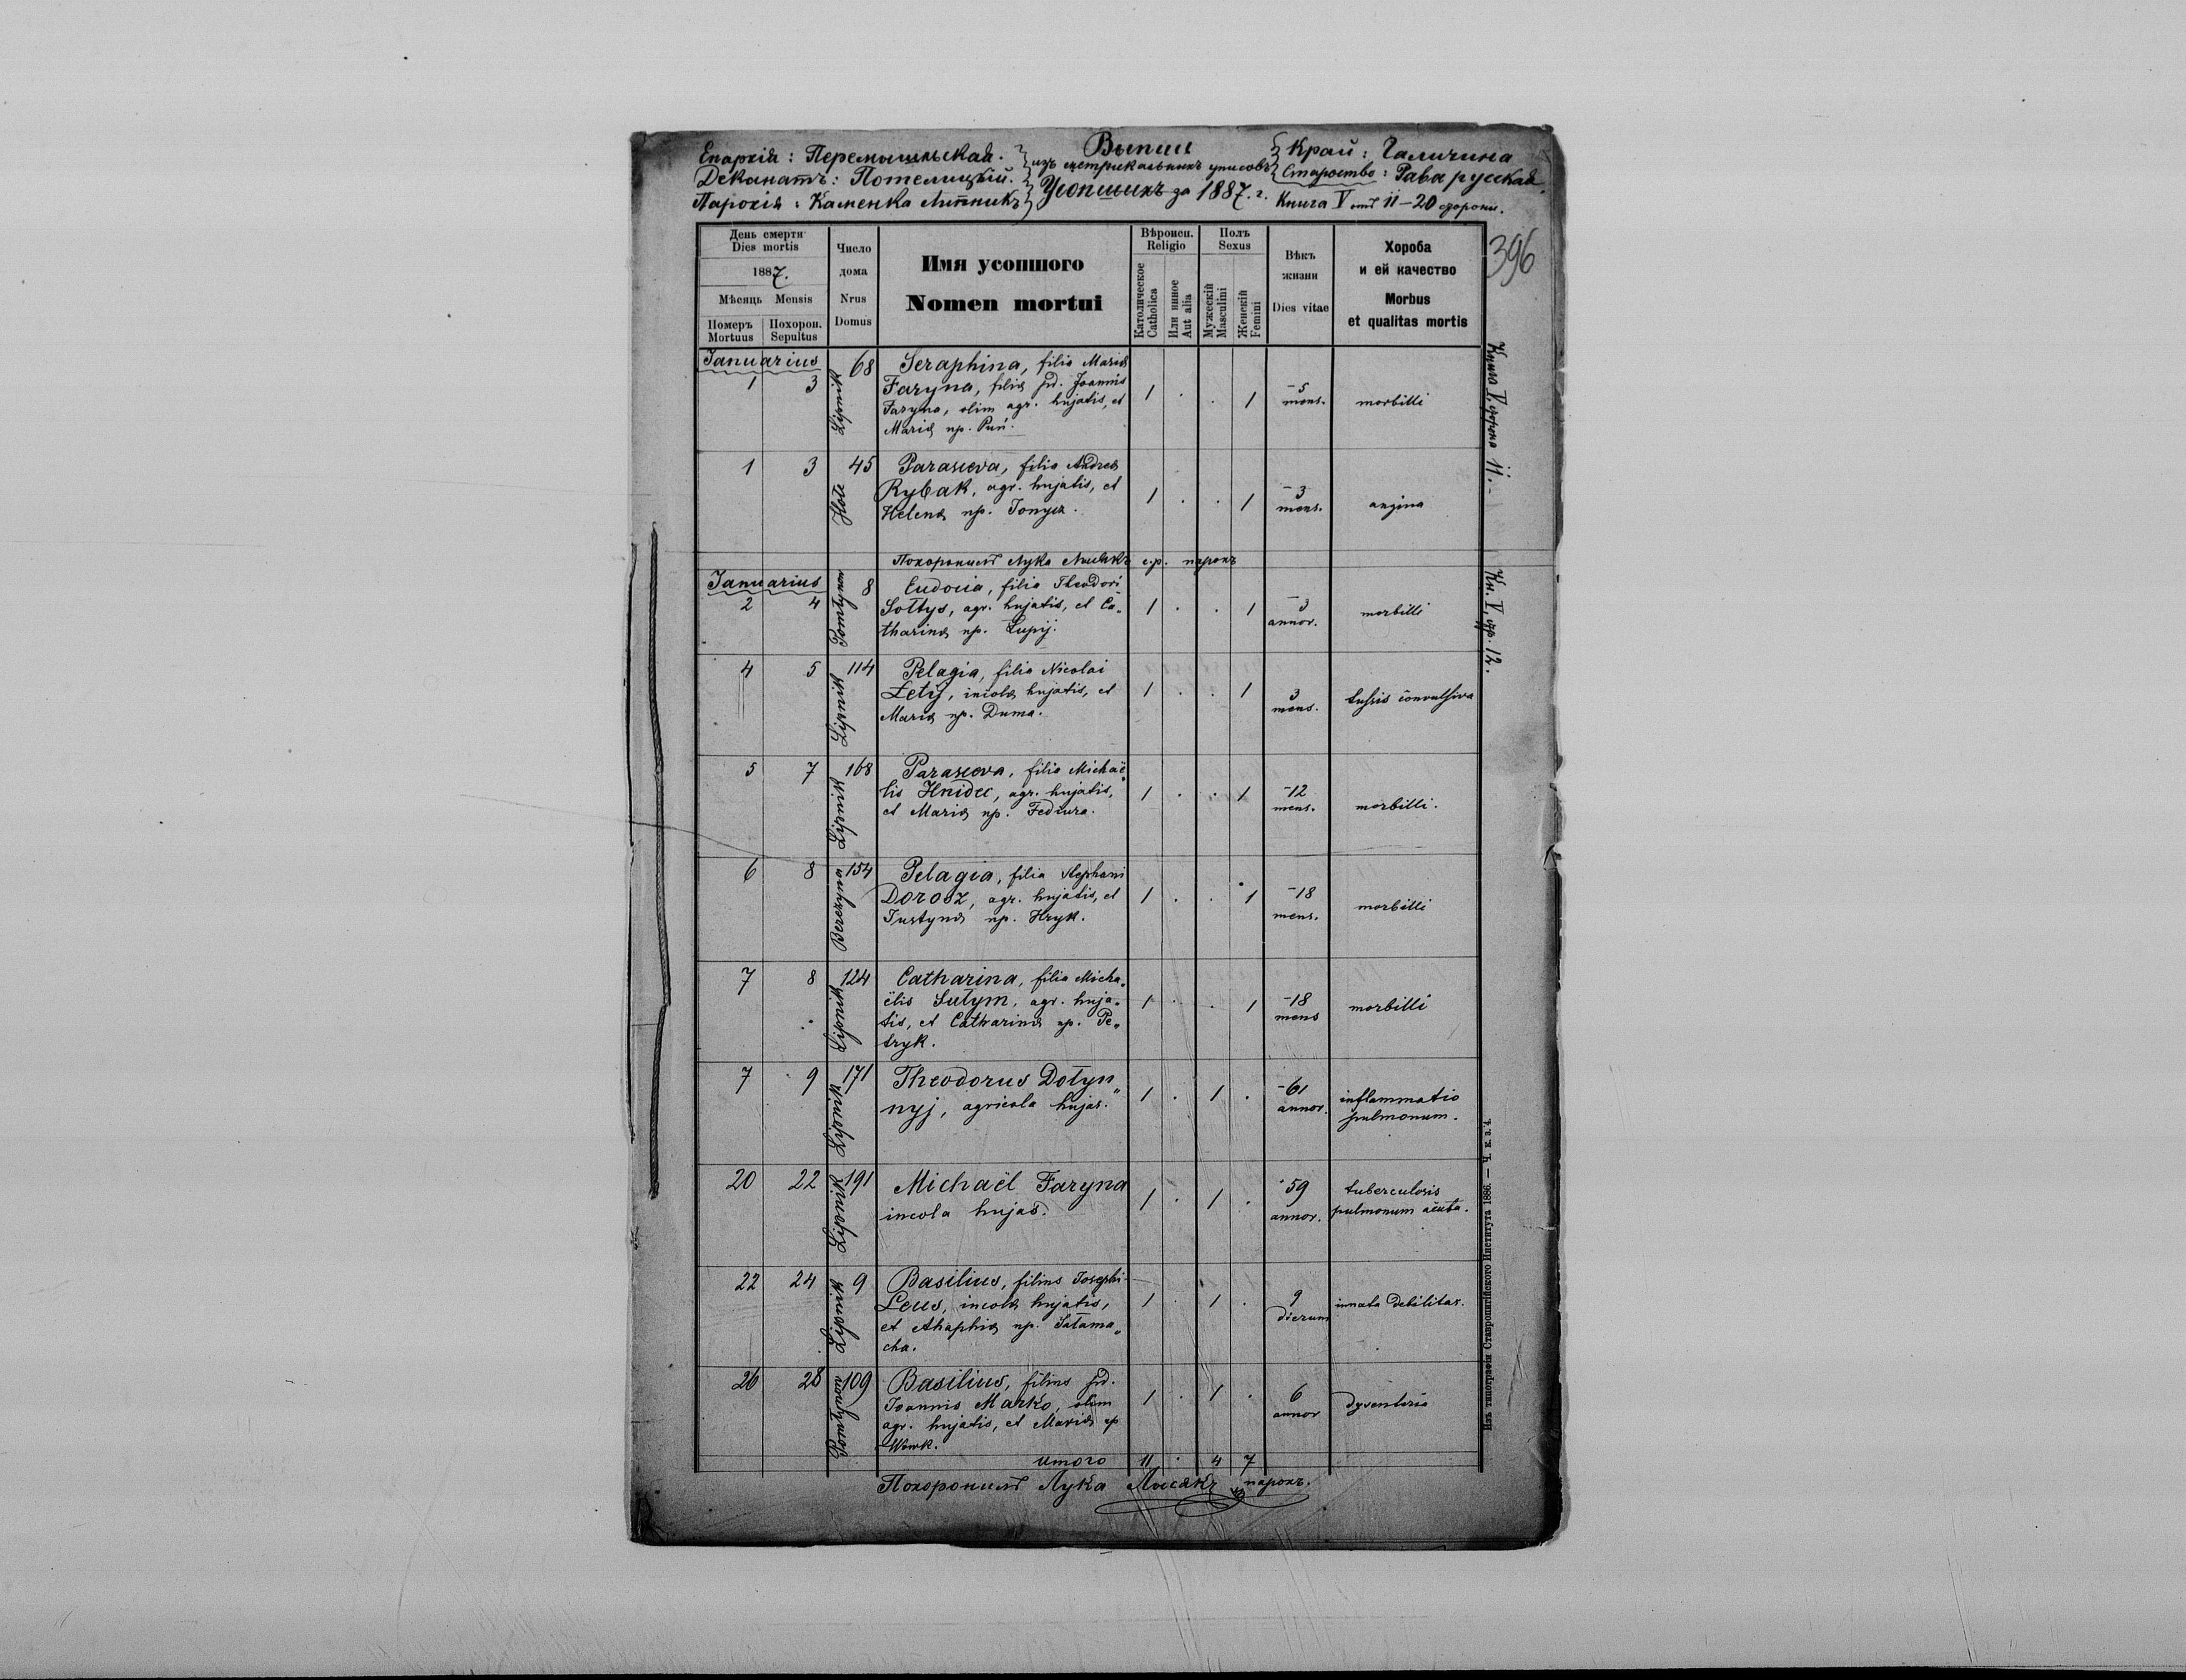 Епархія: Перемышльская.
Деканатъ: Потелицкій.
Парохія: Каменка Липникъ
Выписъ
изъ метрикальныхъ уписовъ
Усопшихъ за 1887. г.
Край: Галичина
Староство: Рава русская.
Книга V отъ 11–20 стороны.
396
День смерти
Dies mortis
1887.
Мѣсяцъ Mensis
Померъ Mortuus
Похорон. Sepultus
Число
дома
Nrus
Domus
Имя усопшого
Nomen mortui
Вѣроисп.
Religio
Католическое
Catholica
Или инное
Aut alia
Полъ
Sexus
Мужескій
Masculini
Женскій
Femini
Вѣкъ
жизни
Dies vitae
Хороба
и ей качество
Morbus
et qualitas mortis
Книга V, сторона 11.
Januarius
1 3 68 Lipnik
Seraphina, filia Mariæ
Faryna, filiæ pd. Joannis
Faryna, olim agr. hujatis, et
Mariæ np. Puń.
1 . . 1
5
mens.
morbilli
1 3 45 Hote
Parasceva, filia Andreæ
Rybak, agr. hujatis, et
Helenæ np. Tonycz.
1 . . 1
3
mens.
angina
Похоронилъ Лука Лысякъ с.р. парохъ
Кн. V, стр. 12.
Januarius
2 4 8
Eudocia, filia Theodori
Sołtys, agr. hujatis, et Ca„
tharinæ np. Łupij.
1 . . 1
3
annor.
morbilli
4 5 114 Lipnik
Pelagia, filia Nicolai
Łety, incolæ hujatis, et
Mariæ np. Duma.
1 . . 1
3
mens.
tussis convulsiva
5 7 168 Lipnik
Parasceva, filia Michaë„
lis Hnidec, agr. hujatis,
et Mariæ np. Fediura.
1 . . 1
12
mens.
morbilli.
6 8 154 Berezyna
Pelagia, filia Stephani
Dorosz, agr. hujatis, et
Justynæ np. Hryk.
1 . . 1
18
mens.
morbilli
7 8 124 Lipnik
Catharina, filia Micha„
ëlis Sutym, agr. huja„
tis, et Catharinæ np. Pe„
tryk.
1 . . 1
18
mens
morbilli
7 9 171 Lipnik
Theodorus Dotyn„
nyj, agricola hujas.
1 . 1 .
61
annor.
inflammatio
pulmonum.
20 22 191 Lipnik
Michaël Faryna
incola hujas.
1 . 1 .
59
annor.
tuberculosis
pulmonum acuta.
22 24 9 Lipnik
Basilius, filius Josephi
Leus, incolæ hujatis,
et Ahaphiæ np. Sałama„
cha.
1 . 1 .
9
dierum
innata debilitas.
26 28 109
Basilius, filius pd.
Joannis Marko, olim
agr. hujatis, et Mariæ np
Wowk.
1 . 1 .
6
annor
dysenteria
итого 11 . 4 7
Похоронилъ Лука Лысякъ парохъ.
Изъ типографіи Ставропигійского Института 1886. — Ч. к. з. 4.